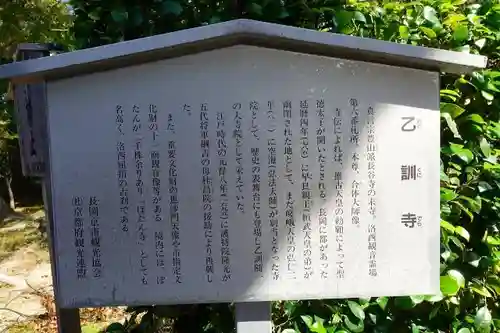 乙訓寺
真言宗豊山派長谷寺の末寺。洛西観音霊場
第六番札所。本尊、合体大師像。
寺伝によれば、推古天皇の勅願によって聖
徳太子が開いたとされる。長岡に都があった
延暦四年（七八五）に早良親王（桓武天皇の弟）が
幽閉された地として、また嵯峨天皇の弘仁二
年（八一一）に空海（弘法大師）が別当となった
院として、歴史の表舞台にも登場し乙訓随一
の大寺院として栄えていた。
江戸時代の元禄八年（一六九五）に護持院隆光が
五代将軍綱吉の母桂昌院の援助により再興し
た。
また、重要文化財の毘沙門天像や市指定文
化財の十一面観音像等がある。境内には、ぼ
たんが二千株余りあり「ぼたん寺」としても
名高く、洛西屈指の古刹である。
長岡京市観光協会
㈳京都府観光連盟